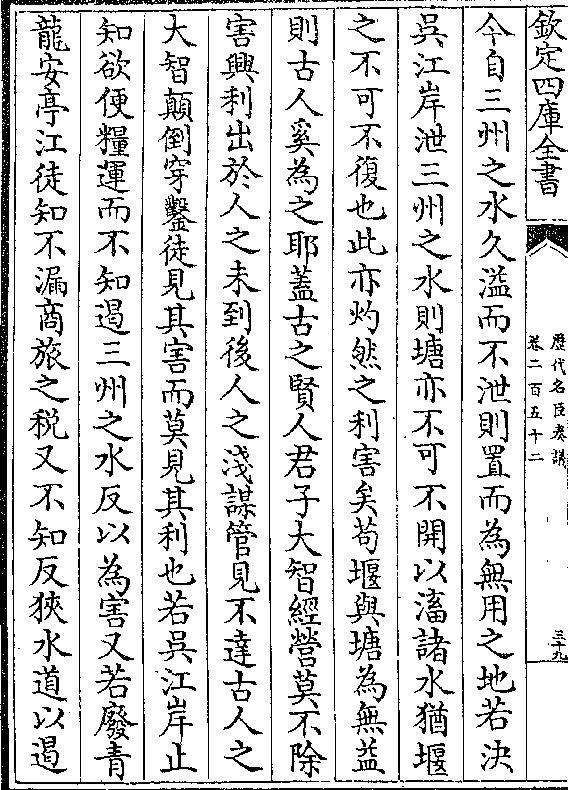 欽定四庫全書
歴代名臣奏議
卷二百五十二
三十九
今自三州之水久溢而不泄則置而為無用之地若決
吳江岸泄三州之水則塘亦不可不開以滀諸水猶堰
之不可不復也此亦灼然之利害矣茍堰與塘為無益
則古人奚為之耶蓋古之賢人君子大智經營莫不除
害興利出於人之未到後人之淺謀管見不達古人之
大智顛倒穿鑿徒見其害而莫見其利也若吳江岸止
知欲便糧運而不知遏三州之水反以為害又若廢青
龍安亭江徒知不漏商旅之稅又不知反狹水道以遏